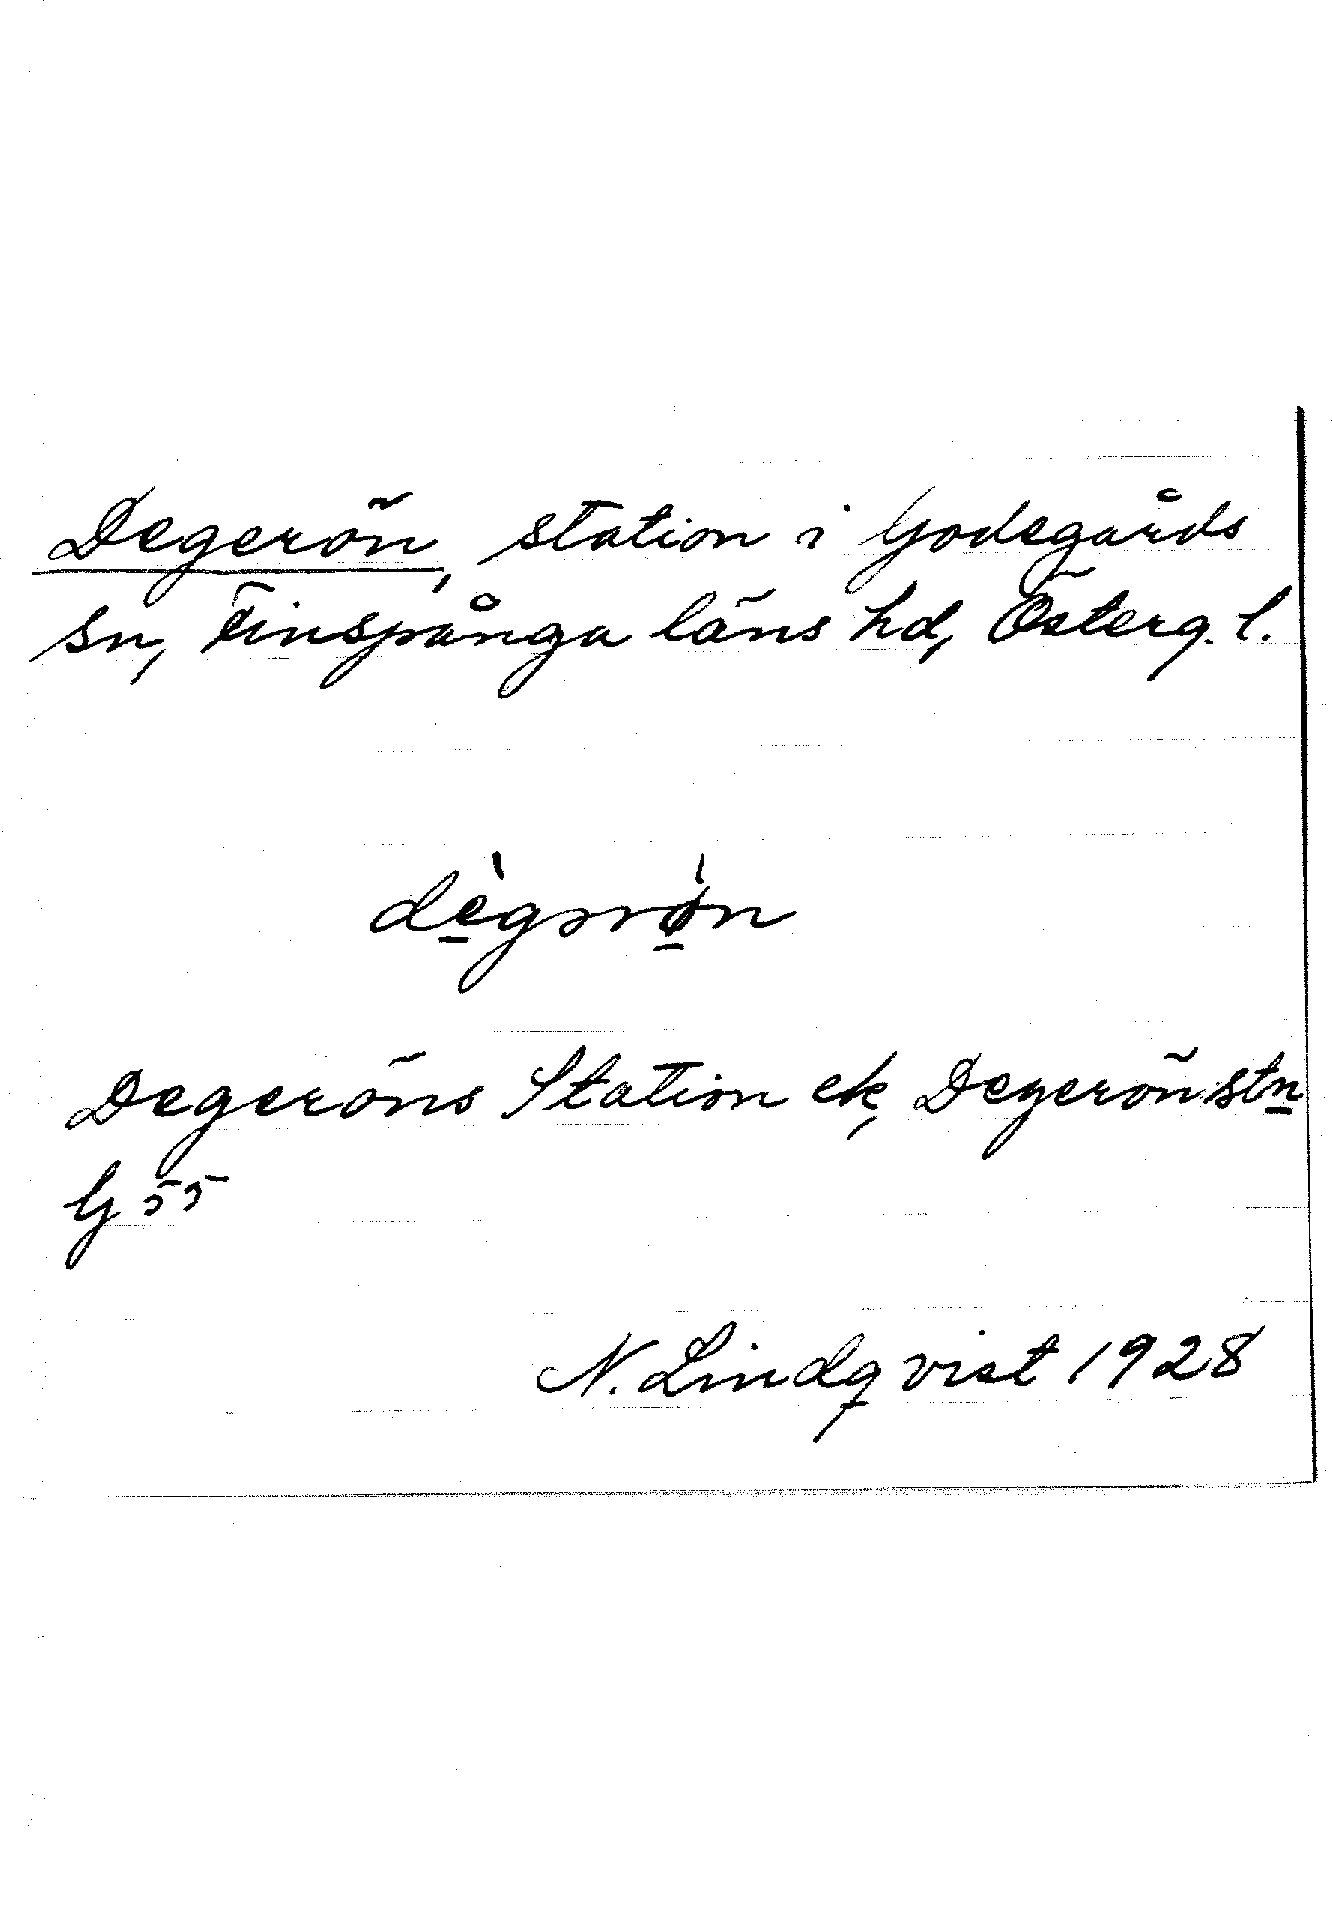 Degerön, station i Godegårds
sn, Finspånga läns hd, Österg. l.
dègərø̀n
Degeröns Station ek, Degerön stn
G 55
N. Lindqvist 1928